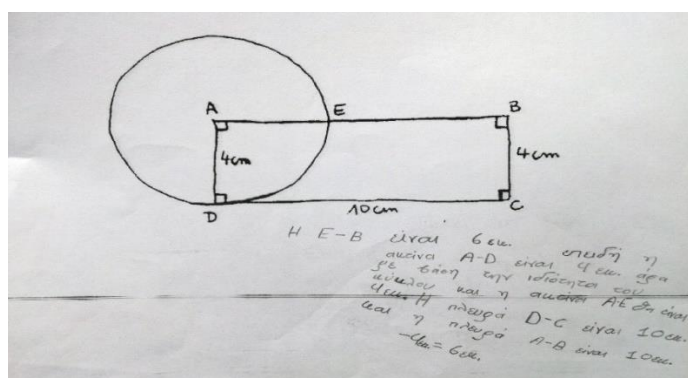 A E B
4cm 4cm
D 10cm C
Η Ε-Β είναι 6εκ. επειδή η
ακτίνα Α-D είναι 4εκ. άρα
με βάση την ιδιότητα του
κύκλου και η ακτίνα ΑΕ θα είναι
4εκ. Η πλευρά D-C είναι 10εκ.
και η πλευρά Α-Β είναι 10εκ.
-4εκ. = 6εκ.